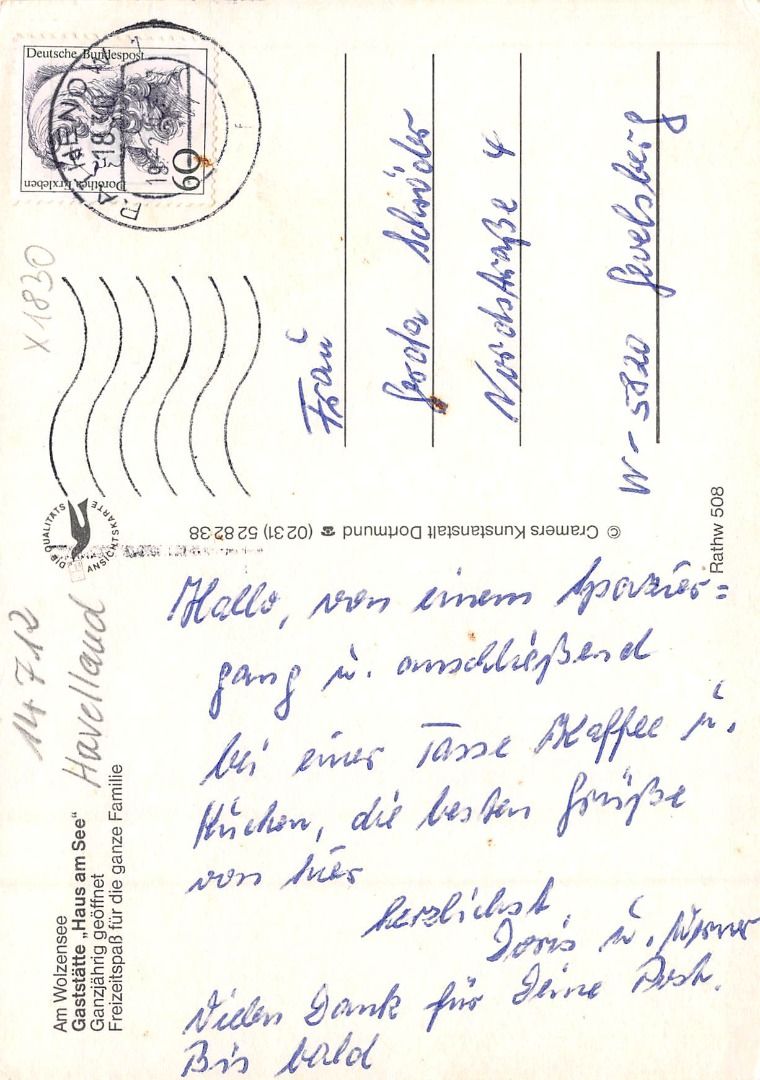 Deutsche Bundespost
Dorothea Erxleben
60
RATHENOW 1
18.30
X 1830
Frau
Gerda Schröder
Nordstraße 4
W-5820 Gevelsberg
DIE QUALITÄTS
ANSICHTSKARTE
© Cramers Kunstanstalt Dortmund ☎ (0231) 52 82 38
Rathw 508
14 7 12
Havelland
Am Wolzensee
Gaststätte „Haus am See“
Ganzjährig geöffnet
Freizeitspaß für die ganze Familie
Hallo, von einem Spazier=
gang u. anschließend
bei einer Tasse Kaffee u.
Kuchen, die besten Grüße
von hier
herzlichst,
Doris u. Werner
Vielen Dank für Deine Post.
Bis bald